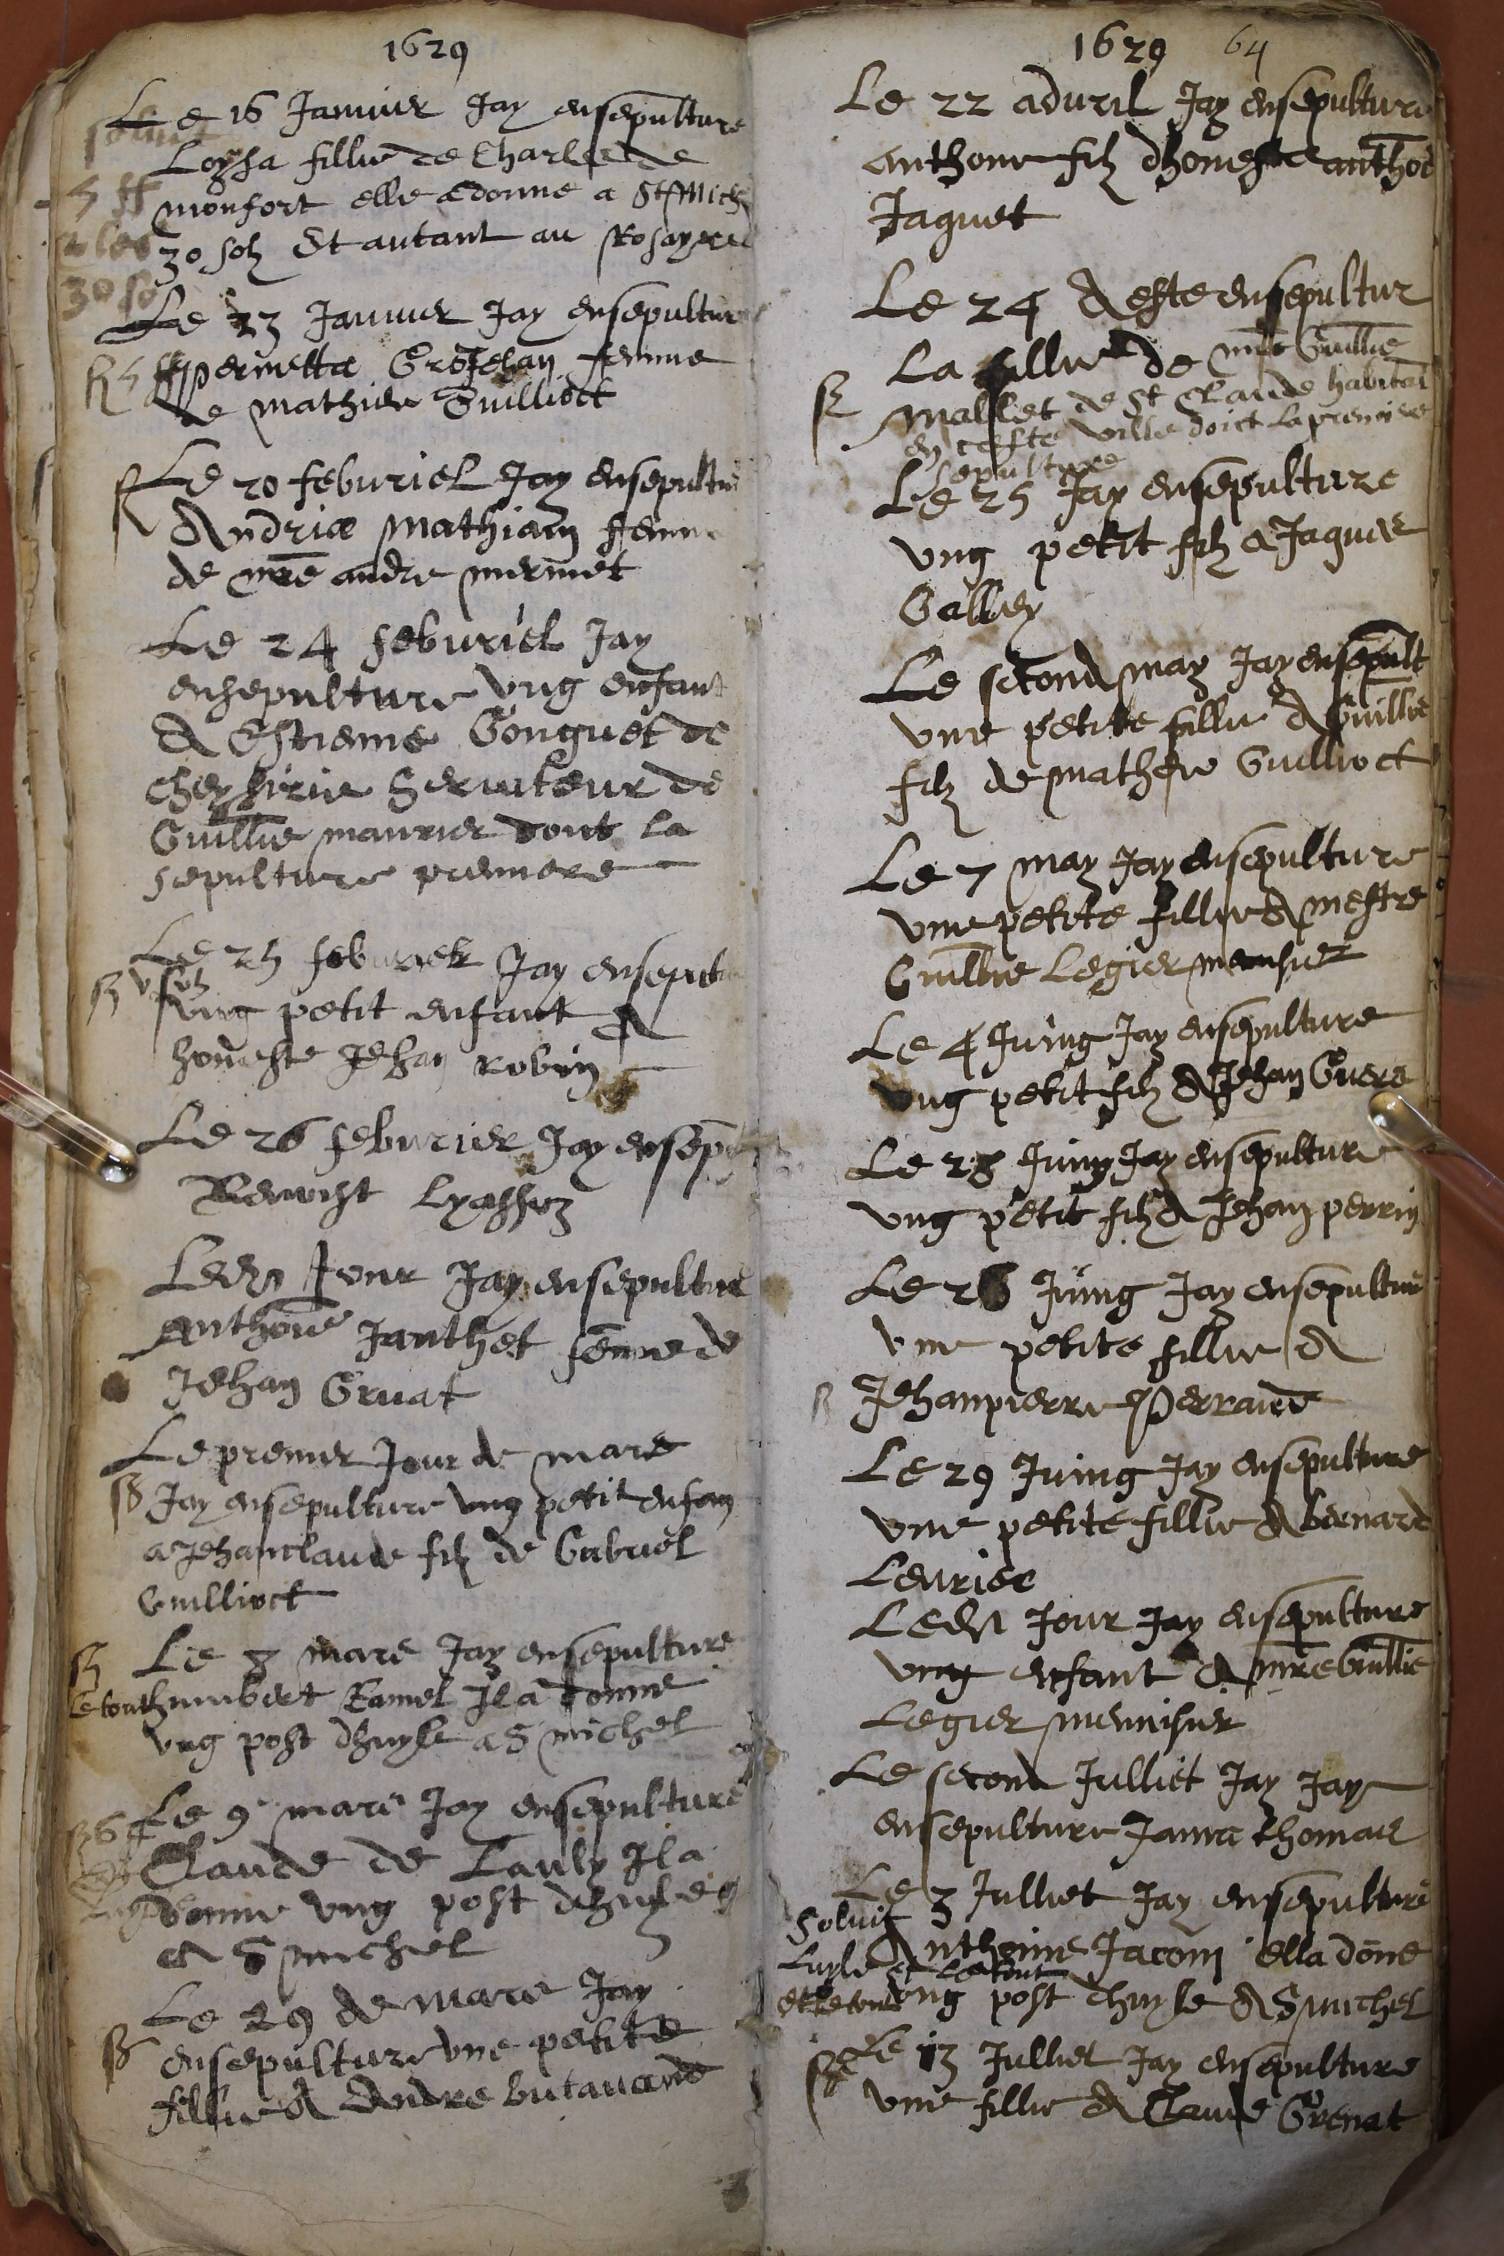 1629
Le 16 Januier Jay ensepulture
Loysa fillie de Charles de
monfort elle a donne a St Mich
30 solz Et autant au Rosayre
Le 23 Januier Jay ensepultur
pernetta femme
de mathieu Guilliott
Le 20 feburiel Jay ensepultu
Andria Mathiam ffemme
de mre andre mermet
Le 24 feburiel Jay
ensepulture vng enfant
A Estienne Gonguet de
seruiteur de
Guillme maurier doit la
sepulture premiere
Le 25 feburier Jay ensepultu
vng petit enfant A
honeste Jehan Robin
Le 26 feburier Jay ensep
Benoist
Ledit Jour Jay ensepulture
anthoine Janthet feme de
Jehan Gruat
Le premier Jour de mars
Jay ensepulture vng petit enfan
a Jehanclaude filz de Gabriel
Guilliott
Le 8 mars Jay ensepulture
humbert Jl a donne
vng post dhuyle a S michel
Le 9 mars Jay ensepulture
Claude de Lauly Jl a
donne vng post dhuyle
a S michel
Le 29 de mars Jay
ensepulture vne petite
fillie A Andre butauand
1629 64
Le 22 apuril Jay ensepulture
anthoine filz dhoneste anthoe
Jaquet
Le 24 A este ensepultur
La fillie de mre Guillme
Mallet de St Claude habitat
en ceste ville doict la premiere
sepulture
Le 25 Jay ensepulture
vng petit filz a Jaques
Galley
Le second may Jay ensepult
vne petite fillie A Guillme
filz de mathieu Guilliott
Le 7 may Jay ensepulture
vne petite fillie A mestre
Guillme Legier menusier
Le 4 Juing Jay ensepulture
vng petit filz A Jehan
Le 28 Juing Jay ensepulture
vng petit filz A Jehan perrin
Le 28 Juing Jay ensepulture
vne petite fillie A
Jehanpierre Perraud
Le 29 Juing Jay ensepulture
vne petite fillie A bernard
Leurier
Ledit Jour Jay ensepulture
vng enfant A mre Guillme
Legier menusier
Le second Julliet Jay Jay
ensepulture Janna thomas
Le 3 Julliet Jay ensepulture
Soluit
Anthoine Jacom ella done
Luyle et le tout
vng post dhuyle A S michel
Le 13 Julliet Jay ensepulture
vne fillie A Claude Grenat